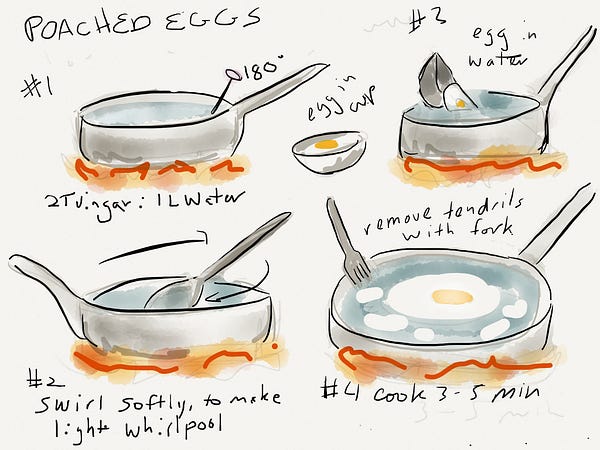 POACHED EGGS
#1
180°
2T vingar: 1L Water
egg in
cup
#3
egg in
water
#2
swirl softly, to make
light whirlpool
remove tendrils
with fork
#4 cook 3-5 min